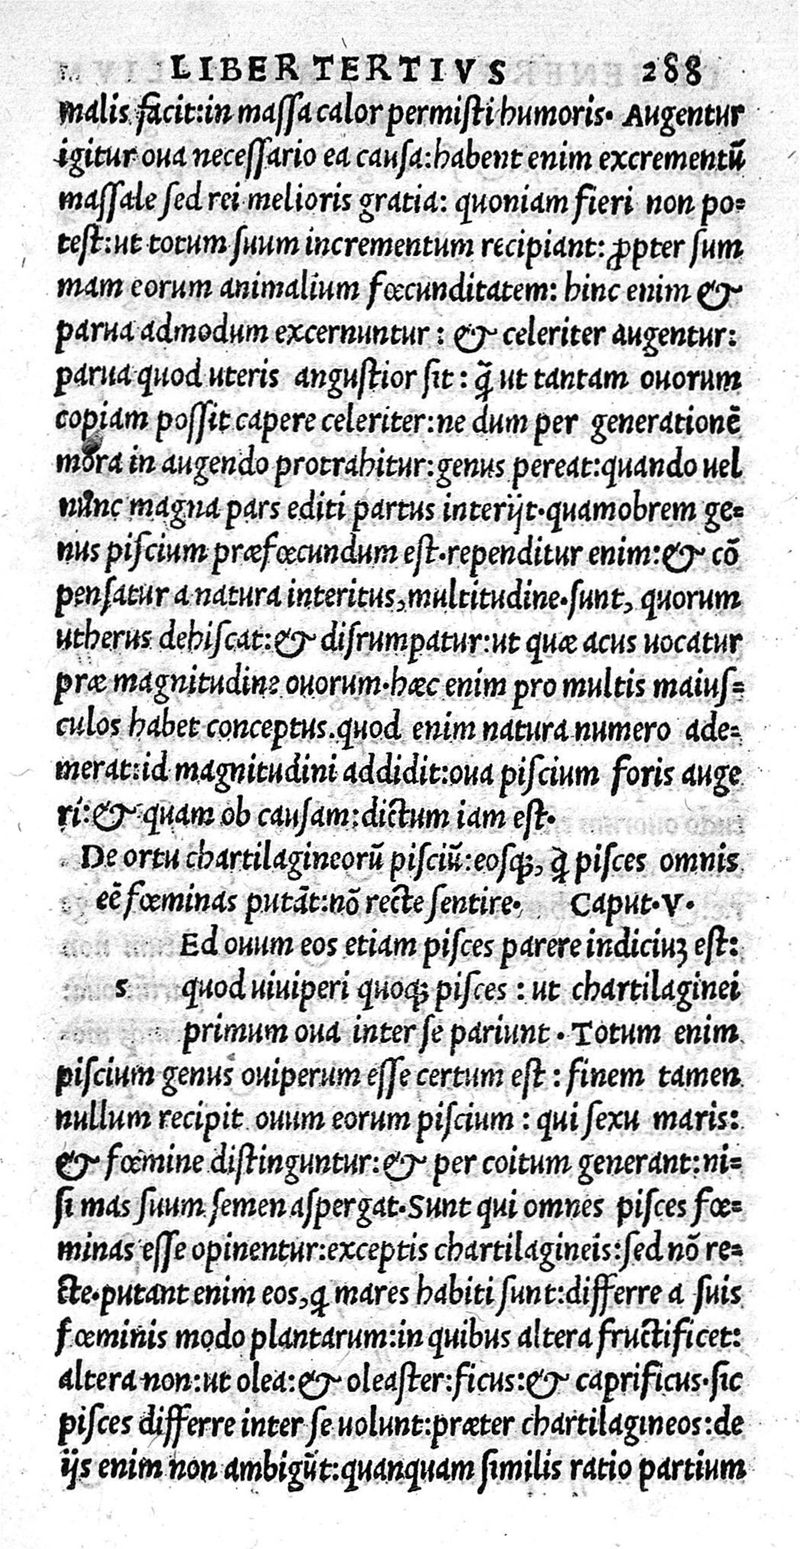 LIBER TERTIVS 288
malis facit:in massa calor permisti humoris. Augentur
igitur oua necessario ea causa:habent enim excrementū
massale sed rei melioris gratia: quoniam fieri non po=
test:ut totum suum incrementum recipiant: ꝓpter sum
mam eorum animalium fœcunditatem: hinc enim &
parua admodum excernuntur : & celeriter augentur:
parua quod uteris angustior sit : q̃ ut tantam ouorum
copiam possit capere celeriter:ne dum per generationē
mora in augendo protrahitur:genus pereat:quando uel
nunc magna pars editi partus interijt.quamobrem ge=
nus piscium præfœcundum est.rependitur enim:& cō
pensatur a natura interitus,multitudine.sunt, quorum
utherus dehiscat:& disrumpatur:ut quæ acus uocatur
præ magnitudine ouorum.hæc enim pro multis maius=
culos habet conceptus.quod enim natura numero ade=
merat:id magnitudini addidit:oua piscium foris auge
ri:& quam ob causam:dictum iam est.
De ortu chartilagineorū pisciū:eosq;, q̇ pisces omnis
eē fœminas putāt:nō recte sentire. Caput.V.
Ed ouum eos etiam pisces parere indiciuꝫ est:
s quod uiuiperi quoq; pisces : ut chartilaginei
primum oua inter se pariunt . Totum enim
piscium genus ouiperum esse certum est : finem tamen
nullum recipit ouum eorum piscium : qui sexu maris:
& fœmine distinguntur:& per coitum generant:ni=
si mas suum semen aspergat.Sunt qui omnes pisces fœ=
minas esse opinentur:exceptis chartilagineis:sed nō re=
cte.putant enim eos,q̇ mares habiti sunt:differre a suis
fœminis modo plantarum:in quibus altera fructificet:
altera non:ut olea:& oleaster:ficus:& caprificus.sic
pisces differre inter se uolunt:præter chartilagineos:de
ijs enim non ambigūt:quanquam similis ratio partium